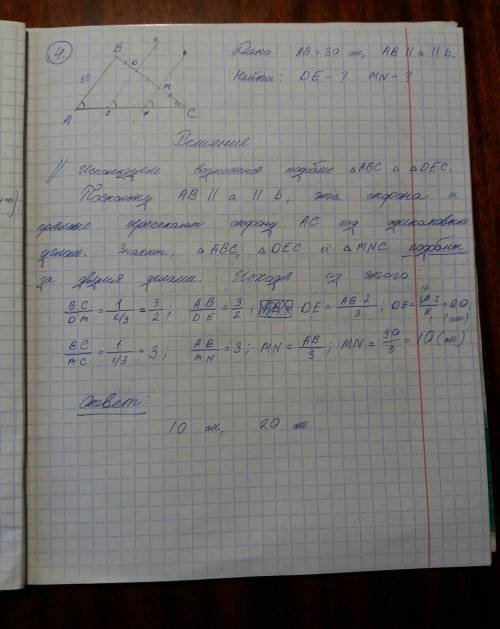 4.
Дано: AB = 30 см, AB || a || b.
Найти: DE - ? MN - ?
B
a
b
D
30
M
A
E
N
C
Решение
// Используем возможное подобие △ABC и △DEC.
Поскольку AB || a || b, эта сторона и
прямые пересекают сторону AC под одинаковым
углом. Значит, △ABC, △DEC и △MNC подобны
за двумя углами. Исходя из этого:
BC/DM = 1/(2/3) = 3/2; AB/DE = 3/2; DE = AB·2/3; DE = 30·2/3 = 20 (см)
BC/MC = 1/(1/3) = 3; AB/MN = 3; MN = AB/3; MN = 30/3 = 10 (см)
Ответ:
10 см, 20 см